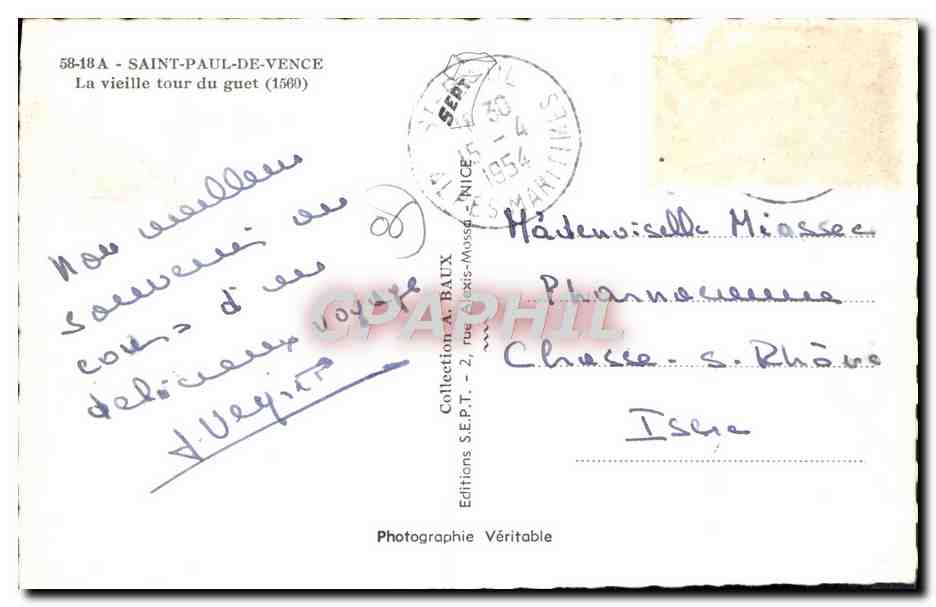 58-18 A - SAINT-PAUL-DE-VENCE
La vieille tour du guet (1560)
ST PAUL
30
15 - 4
1954
ALPES MARITIMES
SEPT
Mon meilleur
souvenir au
cours d'un
délicieux voyage
J. Veyret
8
Collection A. BAUX
Editions S.E.P.T. - 2, rue Alexis-Mossa - NICE
Mademoiselle Miossec
Pharmacienne
Chasse-s-Rhône
Isère
CPAPHIL
Photographie Véritable